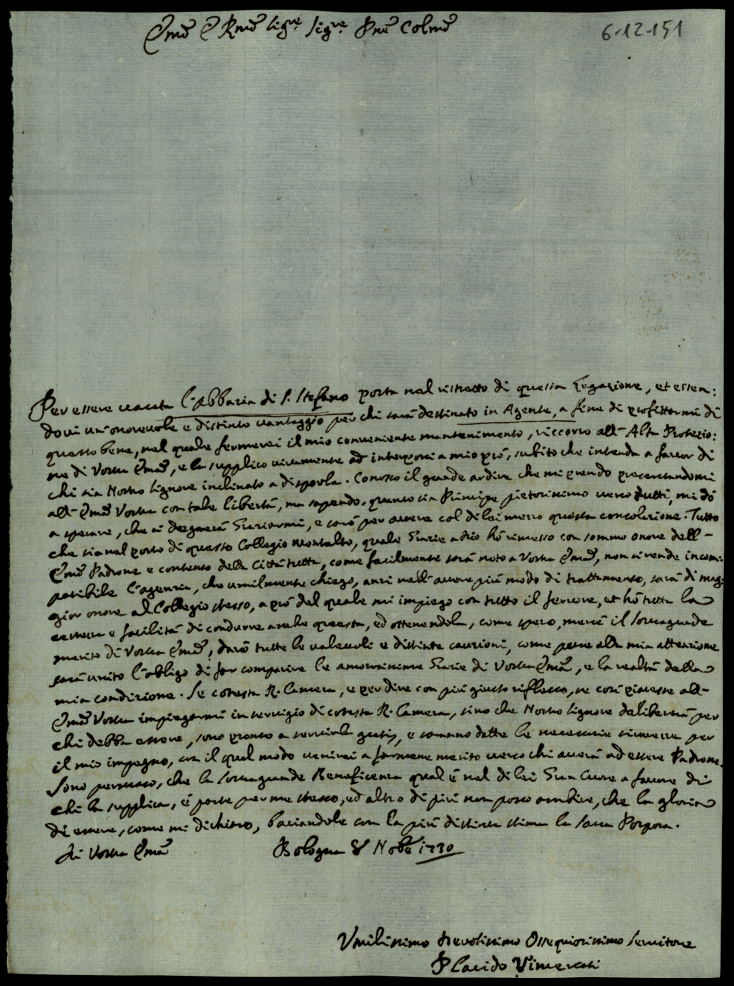 Em̃o e Rmõ Sigre Sigre Pne Colmõ
6-12-151
Per essere vacata l'Abbazia di S. Stefano posta nel ristretto di questa Legazione, et essen:
dovi un onorevole e distinto vantaggio per chi sarà destinato in Agente, a fine di profittarmi di
questo bene, nel quale fermerei il mio conveniente mantenimento, riccorro all'Alta Protezio:
ne di Vostra Em̃a, e la supplico vivamente ad interporsi a mio prò, subito che intenda a favor di
chi sia Nostro Signore inclinato a disporla. Conosco il grande ardire che mi prendo presentandomi
all'Em̃a Vostra con tale libertà, ma sapendo quanto sia Principe pietosissimo verso tutti, mi dò
a sperare, che si degnerà graziarmi, e sarò per avere col di lei mezzo questa consolazione. Tutto
che sia nel posto di questo Collegio Montalto, quale grazie a Dio hò rimesso con sommo onore dell'
Em̃o Padrone e contento della Città tutta, come facilmente sarà noto a Vostra Em̃a, non si rende incom:
patibile l'agenzia, che umilmente chiego, anzi nell'avere più modo di trattamento, sarà di mag:
gior onore al Collegio stesso, a prò del quale mi impiego con tutto il fervore, et hò tutta la
certezza e facilità di condurre anche questa, ed ottenendola, come spero, mercè il sovragrande
merito di Vostra Em̃a, darò tutte le valevoli e distinte cauzioni, come pure alla mia attenzione
sarà unito l'obligo di far comparire le amorosissime grazie di Vostra Em̃a, e la realtà della
mia condizione. Se cotesta R. Camera, e per dire con più giusto riflesso, se così piacesse all'
Em̃a Vostra impiegarmi in servigio di cotesta R. Camera, sino che Nostro Signore delibererà per
chi debba essere, sono pronto a servirla gratis, e saranno dette le necessarie sicurezze per
il mio impegno, con il qual modo venirei a farmene merito verso chi averà ad essere Padrone.
Sono persuaso, che la sovragrande Beneficenza qual'è nel di lei gran Cuore a favore di
chi la supplica, è forte per me stesso, ed altro di più non posso ambire, che la gloria
di essere, come mi dichiaro, baciandole con la più distinta stima la Sacra Porpora.
Di Vostra Em̃a Bologna 8 Nobẽ 1730
Umilissimo Devotissimo Ossequiosissimo Servitore
Placido Vimercati